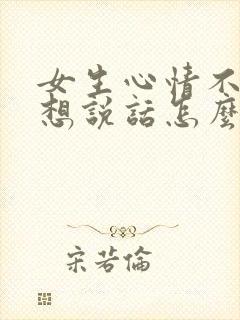 女生心情不
想說話怎麼
宋若倫